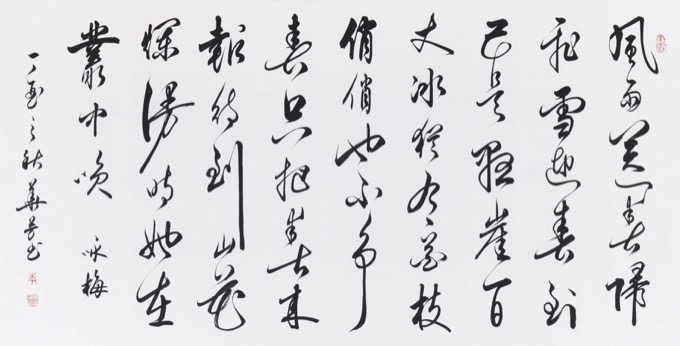 風雨送春歸
飛雪迎春到
已是懸崖百
丈冰猶有花枝
俏俏也不争
春只把春來
報待到山花
爛漫時她在
叢中咲 咏梅
丁酉之秋華芳书